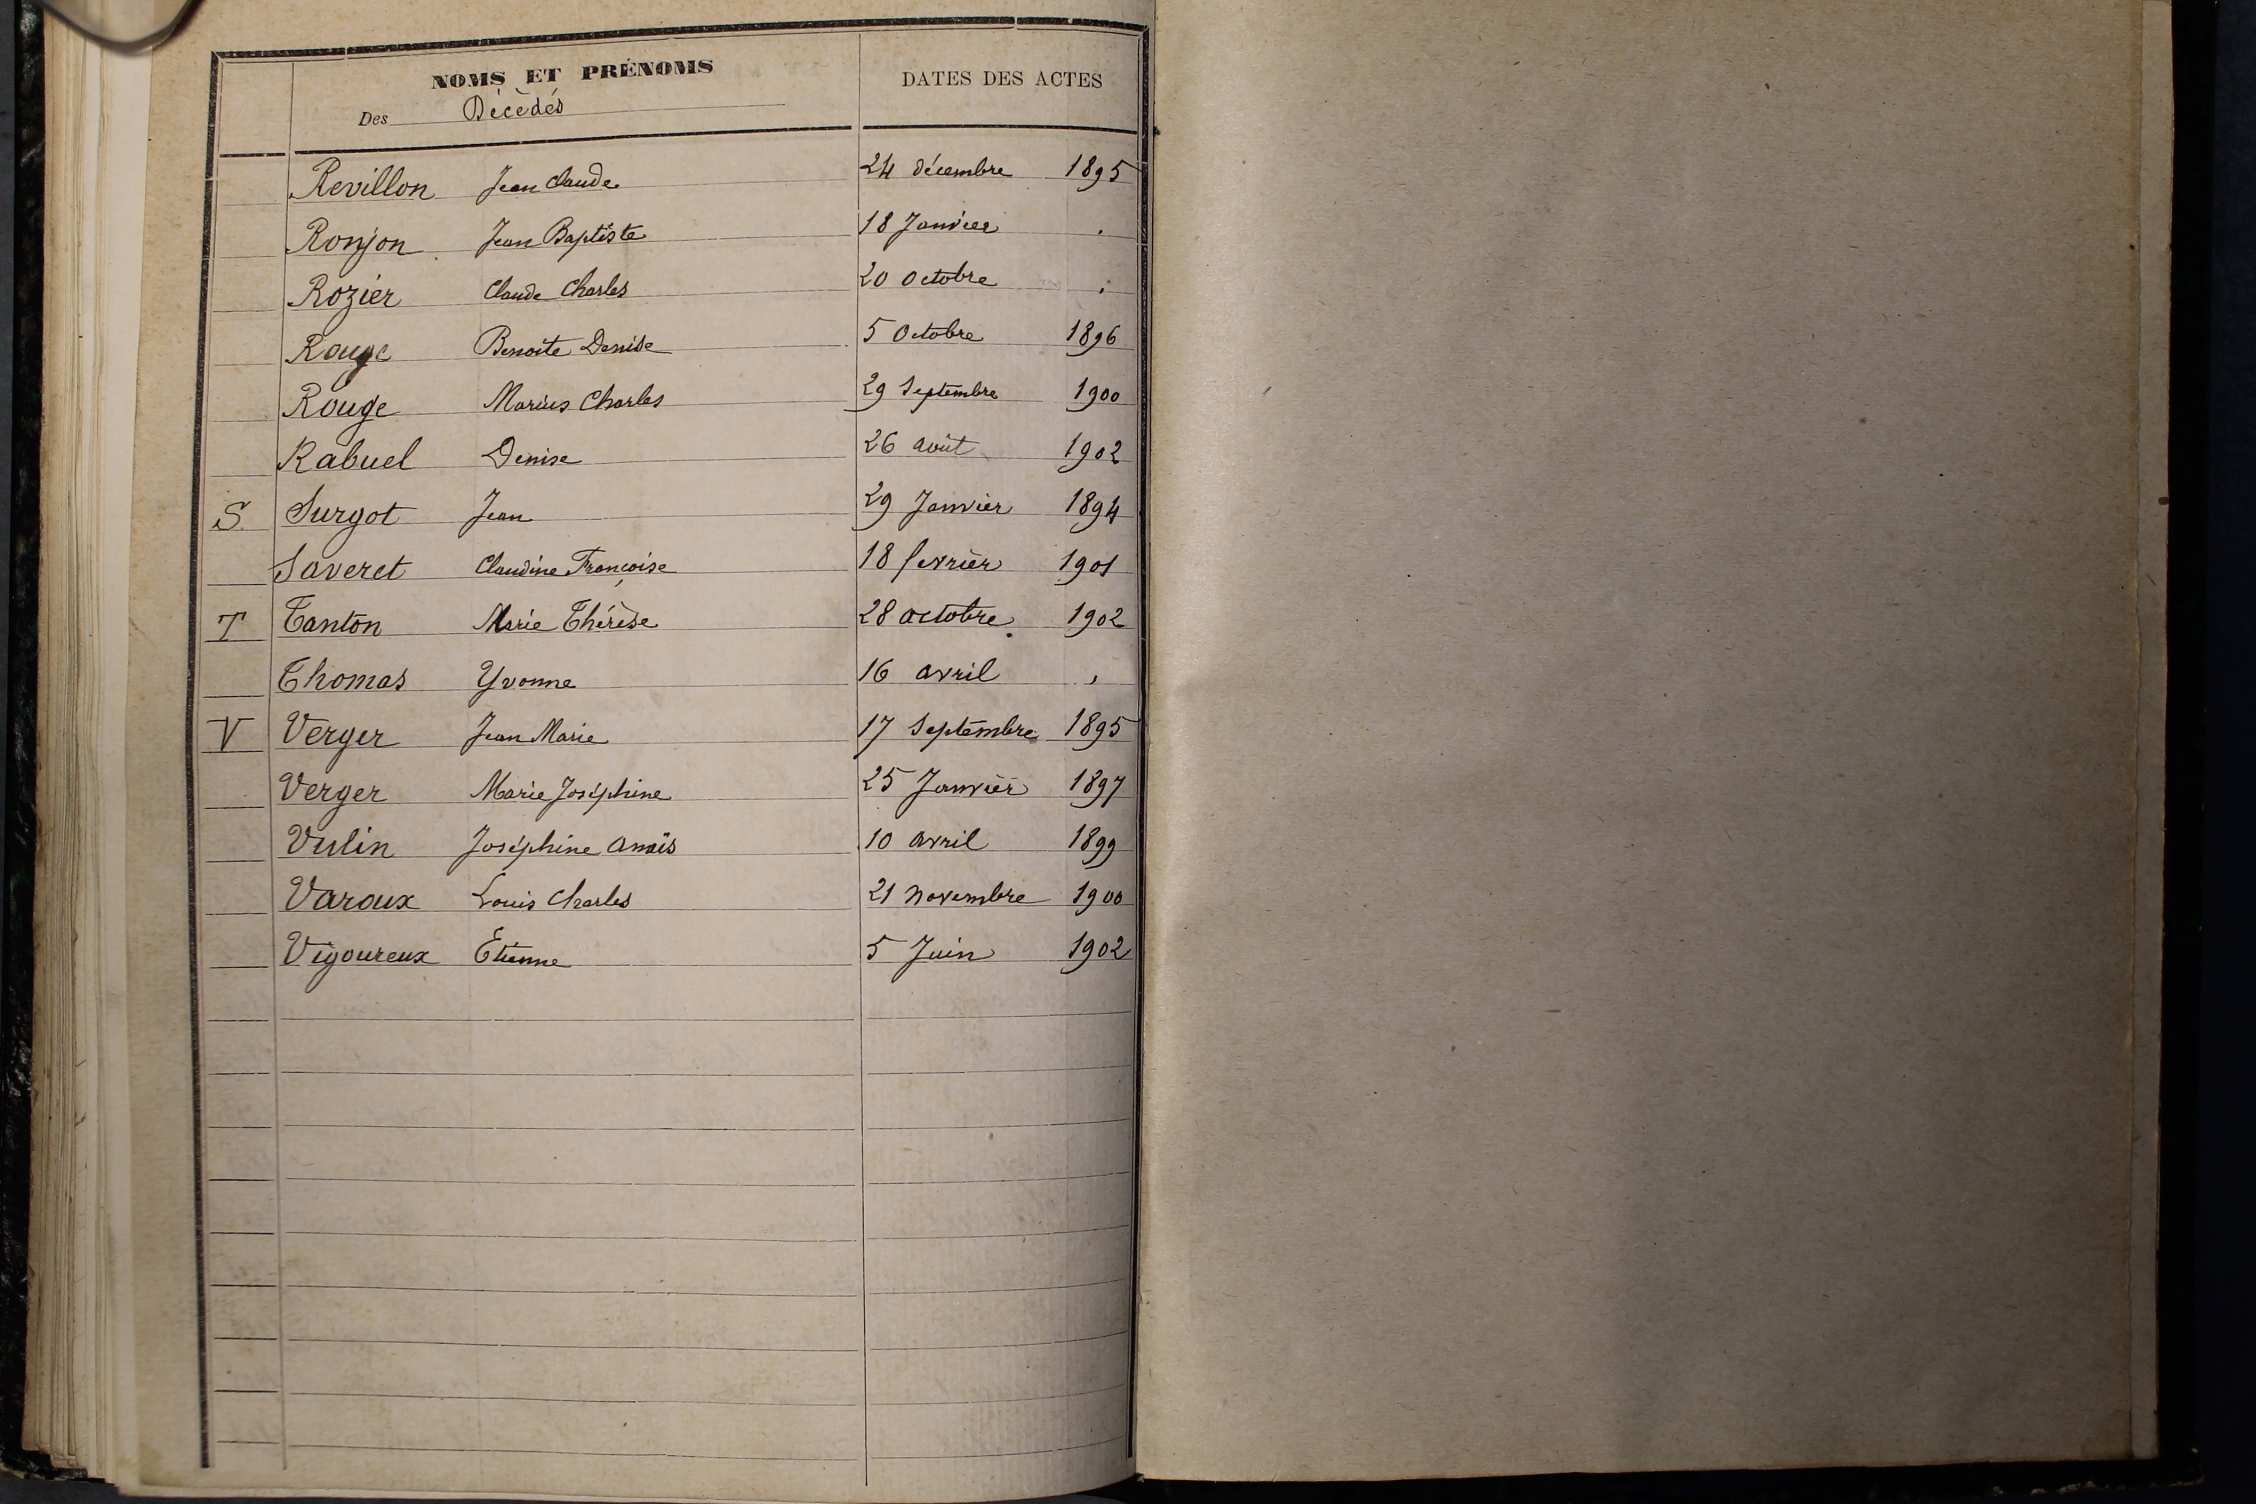 NOMS ET PRÉNOMS DATES DES ACTES
Des Décédés
Revillon Jean Claude 24 décembre 1895
Ronjon Jean Baptiste 18 Janvier .
Rozier Claude Charles 20 octobre .
Rouge Benoite Denise 5 Octobre 1896
Rouge Marius Charles 29 Septembre 1900
Rabuel Denise 26 août 1902
S Surgot Jean 29 Janvier 1894
Saveret Claudine Françoise 18 fevrier 1901
T Tanton Marie Thérèse 28 octobre 1902
Thomas Yvonne 16 avril ,
V Verger Jean Marie 17 Septembre 1895
Verger Marie Joséphine 25 Janvier 1897
Vulin Joséphine anaïs 10 avril 1899
Varoux Louis Charles 21 novembre 1900
Vigoureux Étienne 5 Juin 1902